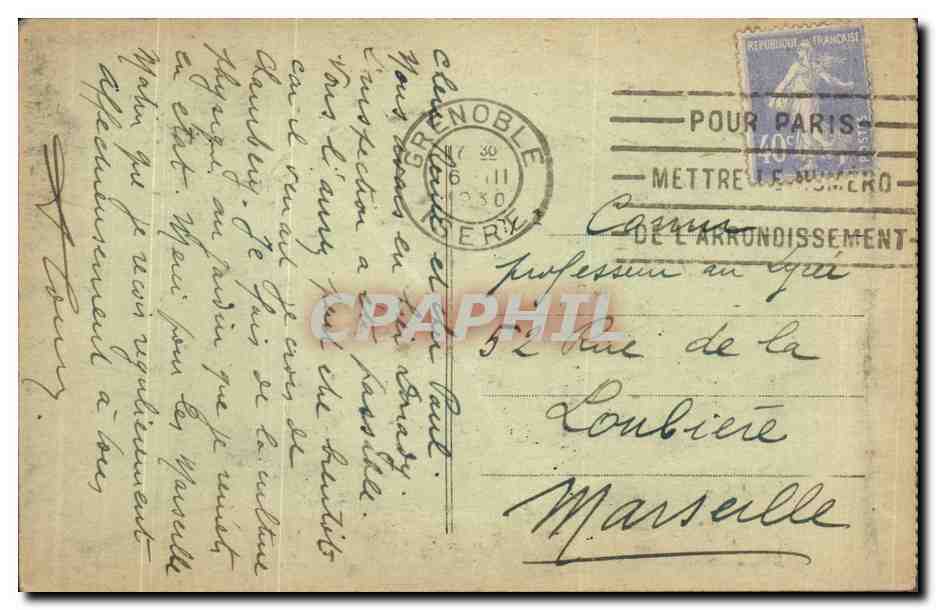 Chers Louise et Paul.
Nous avons eu hier Donady.
L'inspection a été passable.
Vous l'aurez peut être bientôt
car il venait je crois de
Chambéry. Je fais de la culture
physique au jardin que je remets
en état. Merci pour les Marseille
Matin que je reçois régulièrement
Affectueusement à tous
GRENOBLE
17 30
6 III
1930
ISERE
REPUBLIQUE FRANÇAISE
40c
POSTES
POUR PARIS
METTRE LE NUMERO
DE L'ARRONDISSEMENT
professeur au Lycée
52 Rue de la
Loubière
Marseille
CPAPHIL